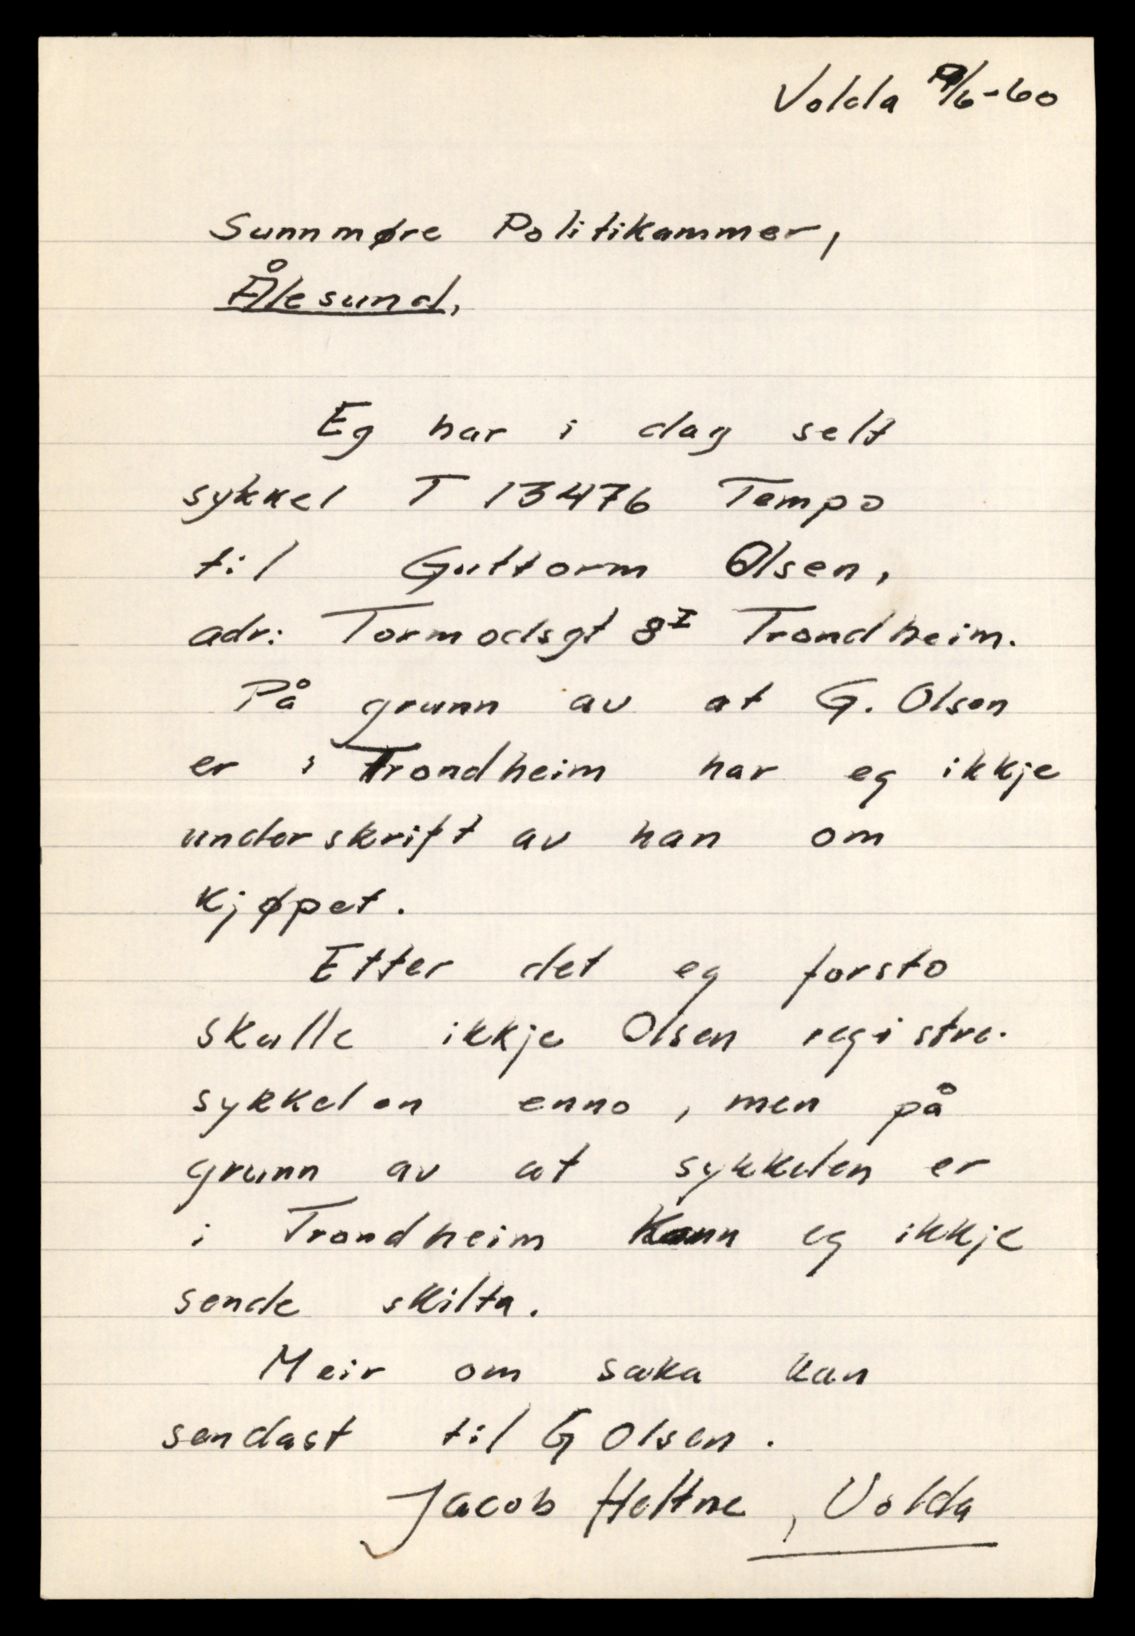 Volda /6-60
Sunnmøre Politikammer,
Ålesund,
Eg har i dag selt
sykkel T 13476 Tempo
til Guttorm Olsen,
adr: Tormodsgt 8 I Trondheim.
På grunn av at G. Olsen
er i Trondheim har eg ikkje
underskrift av han om
kjøpet.
Etter det eg forsto
skulle ikkje Olsen registre.
sykkelen enno, men på
grunn av at sykkelen er
i Trondheim kann eg ikkje
sende skilta.
Meir om saka kan
sendast til G Olsen.
Jacob Heltne, Volda